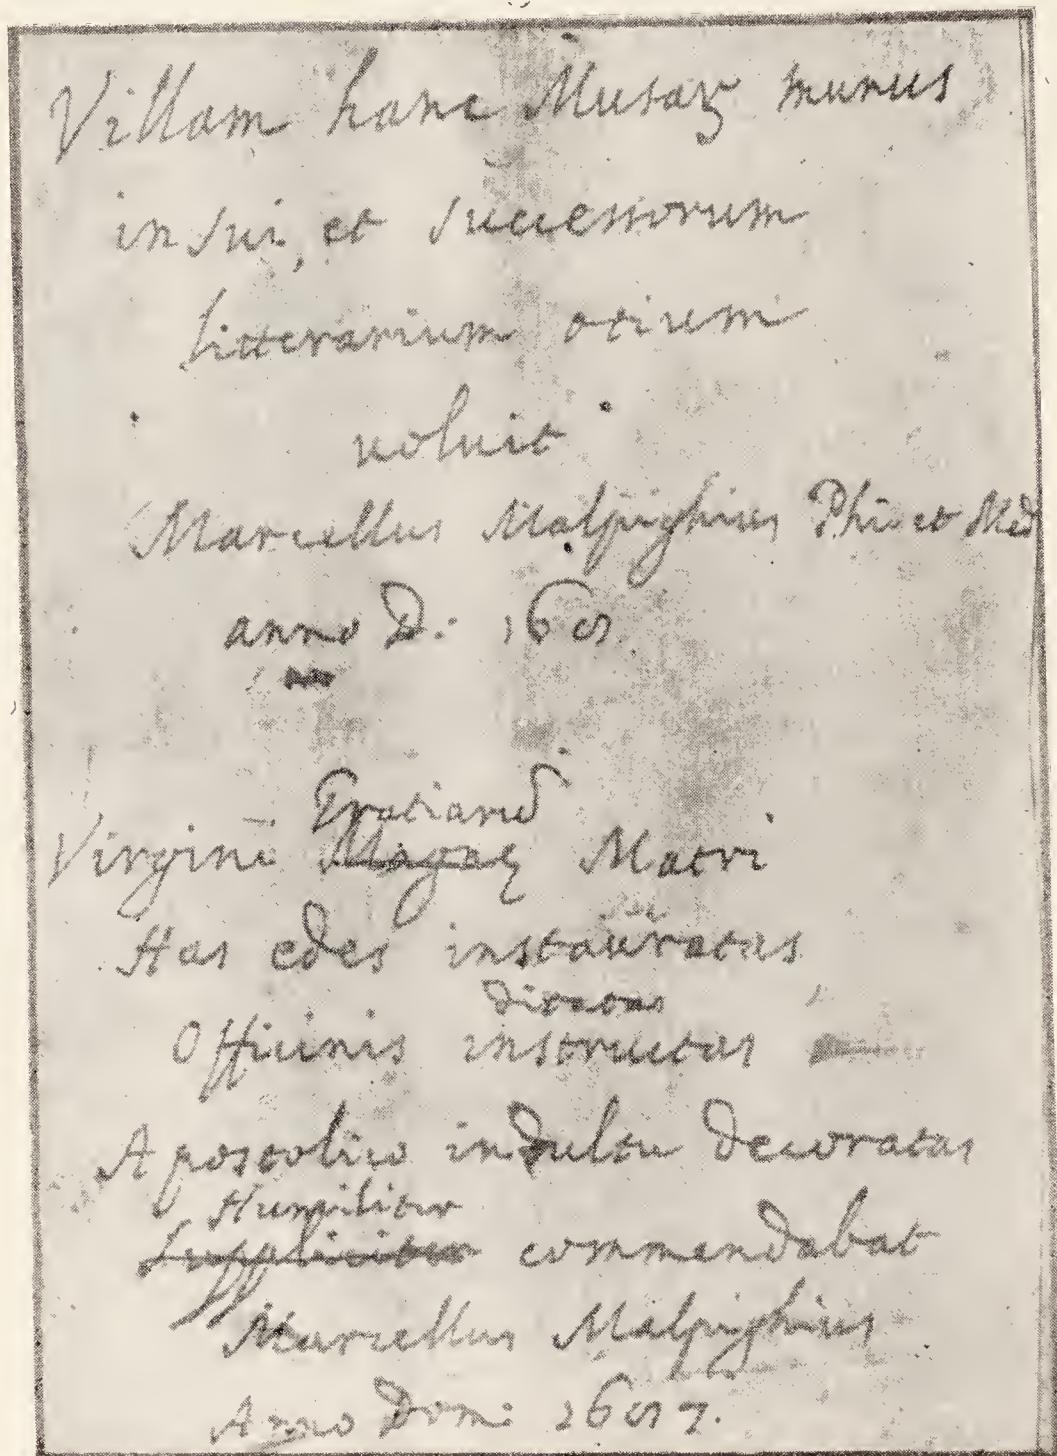 Villam hanc Musaꝝ munus
in sui, et successorum
litterarium otium
uoluit
Marcellus Malpighius Phi: et Med
anno D: 168
Gratiarū
Virgini Matri
Has edes instauratas
ditatas
Officinis instructas
Apostolico indultu decoratas
Humiliter
Suppliciter commendabat
Marcellus Malpighius
Anno Dom: 1687.